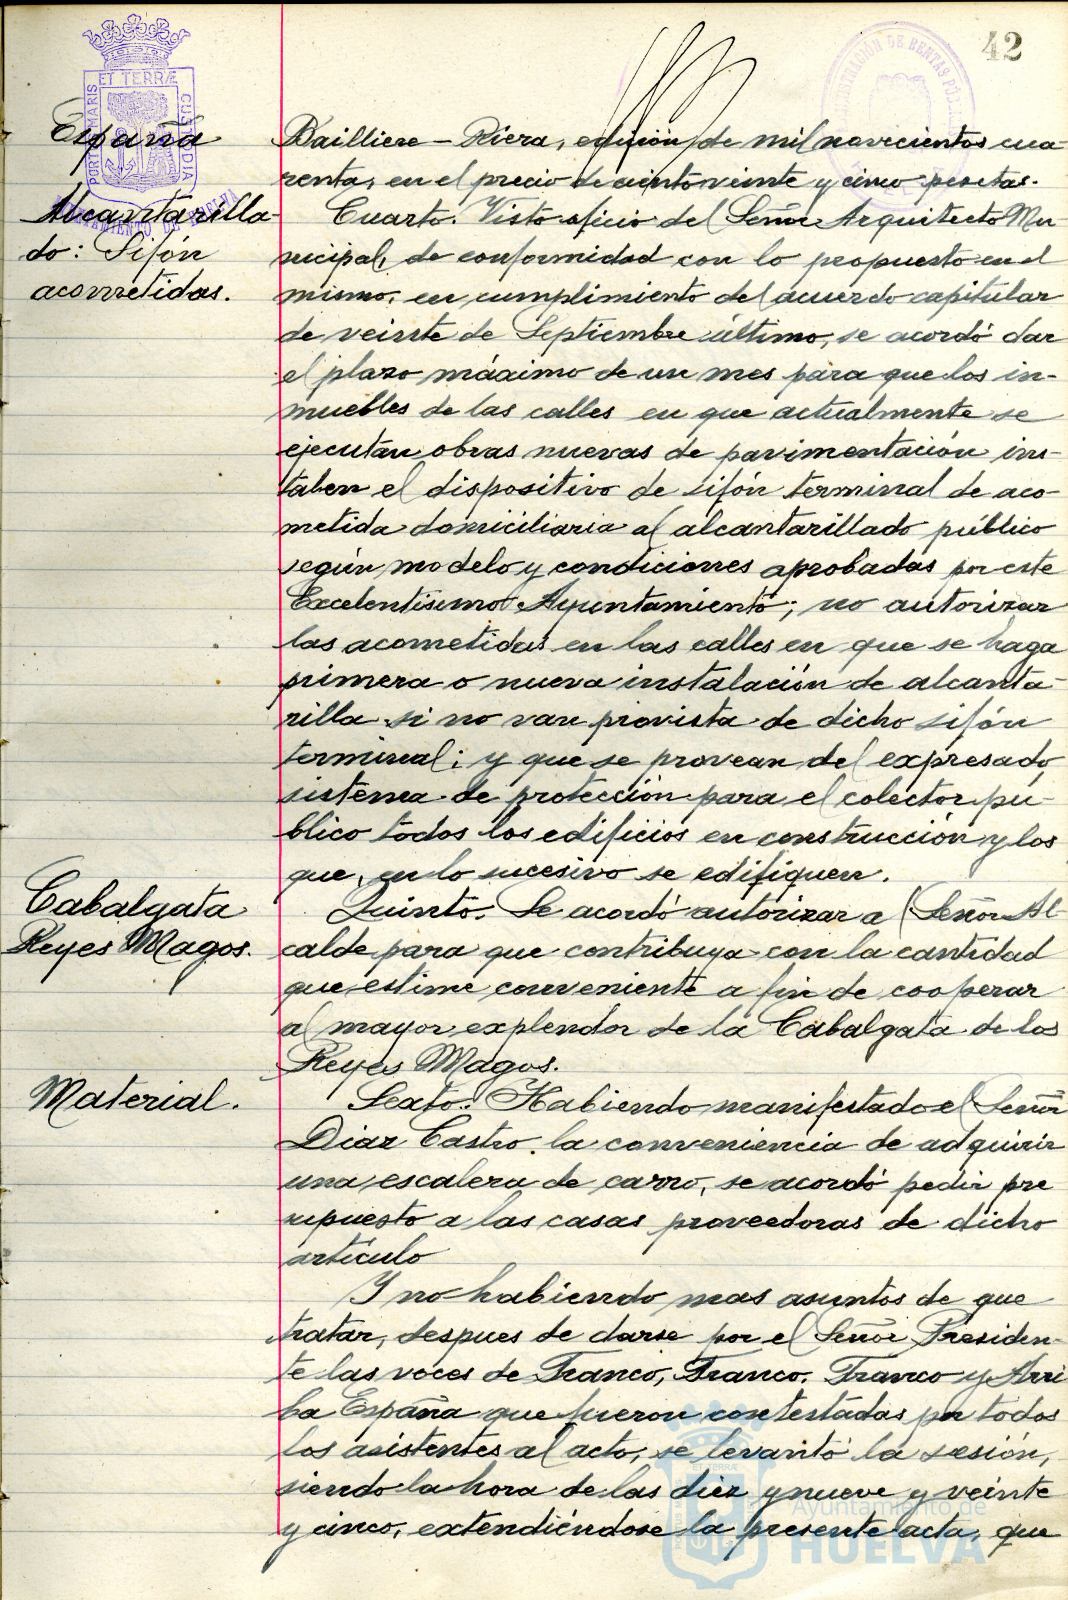 42
España
Bailliere - Riera, edición de mil novecientos cua-
renta, en el precio de ciento veinte y cinco pesetas.
Alcantarilla-
do: Sifón
acometidas.
Cuarto. Visto oficio del Señor Arquitecto Mu
nicipal, de conformidad con lo propuesto en el
mismo, en cumplimiento del acuerdo capitular
de veinte de Septiembre último, se acordó dar
el plazo máximo de un mes para que los in-
muebles de las calles en que actualmente se
ejecutan obras nuevas de pavimentación ins-
talen el dispositivo de sifón terminal de aco-
metida domiciliaria al alcantarillado público
según modelo y condiciones aprobadas por este
Excelentísimo Ayuntamiento; no autorizar
las acometidas en las calles en que se haga
primera o nueva instalación de alcanta-
rilla si no van provista de dicho sifón
terminal; y que se provean del expresado
sistema de protección para el colector pú-
blico todos los edificios en construcción y los
que, en lo sucesivo se edifiquen.
Cabalgata
Reyes Magos.
Quinto. Se acordó autorizar al Señor Al-
calde para que contribuya con la cantidad
que estime conveniente a fin de cooperar
al mayor explendor de la Cabalgata de los
Reyes Magos.
Material.
Sexto. Habiendo manifestado el Señor
Díaz Castro, la conveniencia de adquirir
una escalera de carro, se acordó pedir pre
supuesto a las casas proveedoras de dicho
artículo
Y no habiendo mas asuntos de que
tratar, despues de darse por el Señor Presiden-
te las voces de Franco, Franco, Franco y Arri
ba España que fueron contestadas por todos
los asistentes al acto, se levantó la sesión,
siendo la hora de las diez y nueve y veinte
y cinco, extendiéndose la presente acta, que
Ayuntamiento de
HUELVA